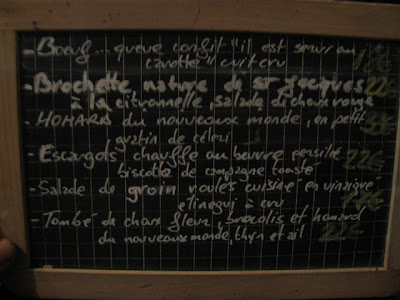 - Bœuf... queue confit "il est servi au
carotte" cuit cru
- Brochette nature de St Jacques 22€
à la citronnelle, salade di choux rouge
- HOMARD du nouveaux monde, en petit
gratin de céleri
- Escargots chauffé au beurre persillé 22€
biscotte de campagne toasté
- Salade de groin roulés cuisiné "en vinaigre"
et à cru
- Tombé de choux fleur, brocolis et homard
du nouveaux monde, thym et ail 22€